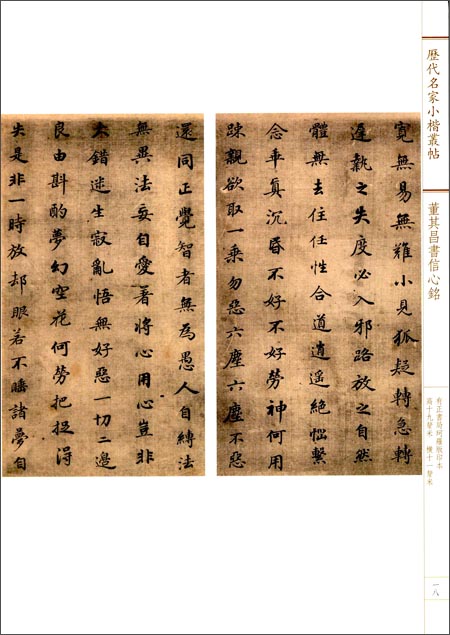 歷代名家小楷叢帖
董其昌書信心銘
有正書局珂羅版印本
高十九釐米 橫十一釐米
一八
寬無易無難小見狐疑轉急轉
遲執之失度必入邪路放之自然
體無去住任性合道逍遥絕惱繫
念乖真沉昏不好不好勞神何用
踈親欲取一乘勿惡六塵六塵不惡
還同正覺智者無為愚人自縛法
無異法妄自愛著將心用心豈非
大錯迷生寂亂悟無好惡一切二邊
良由斟酌夢幻空花何勞把捉得
失是非一時放却眼若不睡諸夢自